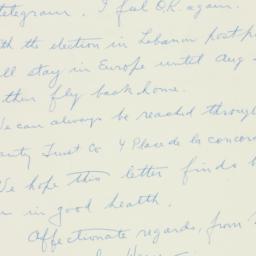 telegram. I feel O.K. again.
the election in Lebanon postp
ll stay in Europe until Aug
then fly back home.
We can always be reached through
anty Trust Co 4 Place de la concor
We hope this letter finds
in good health.
Affectionate regards, from